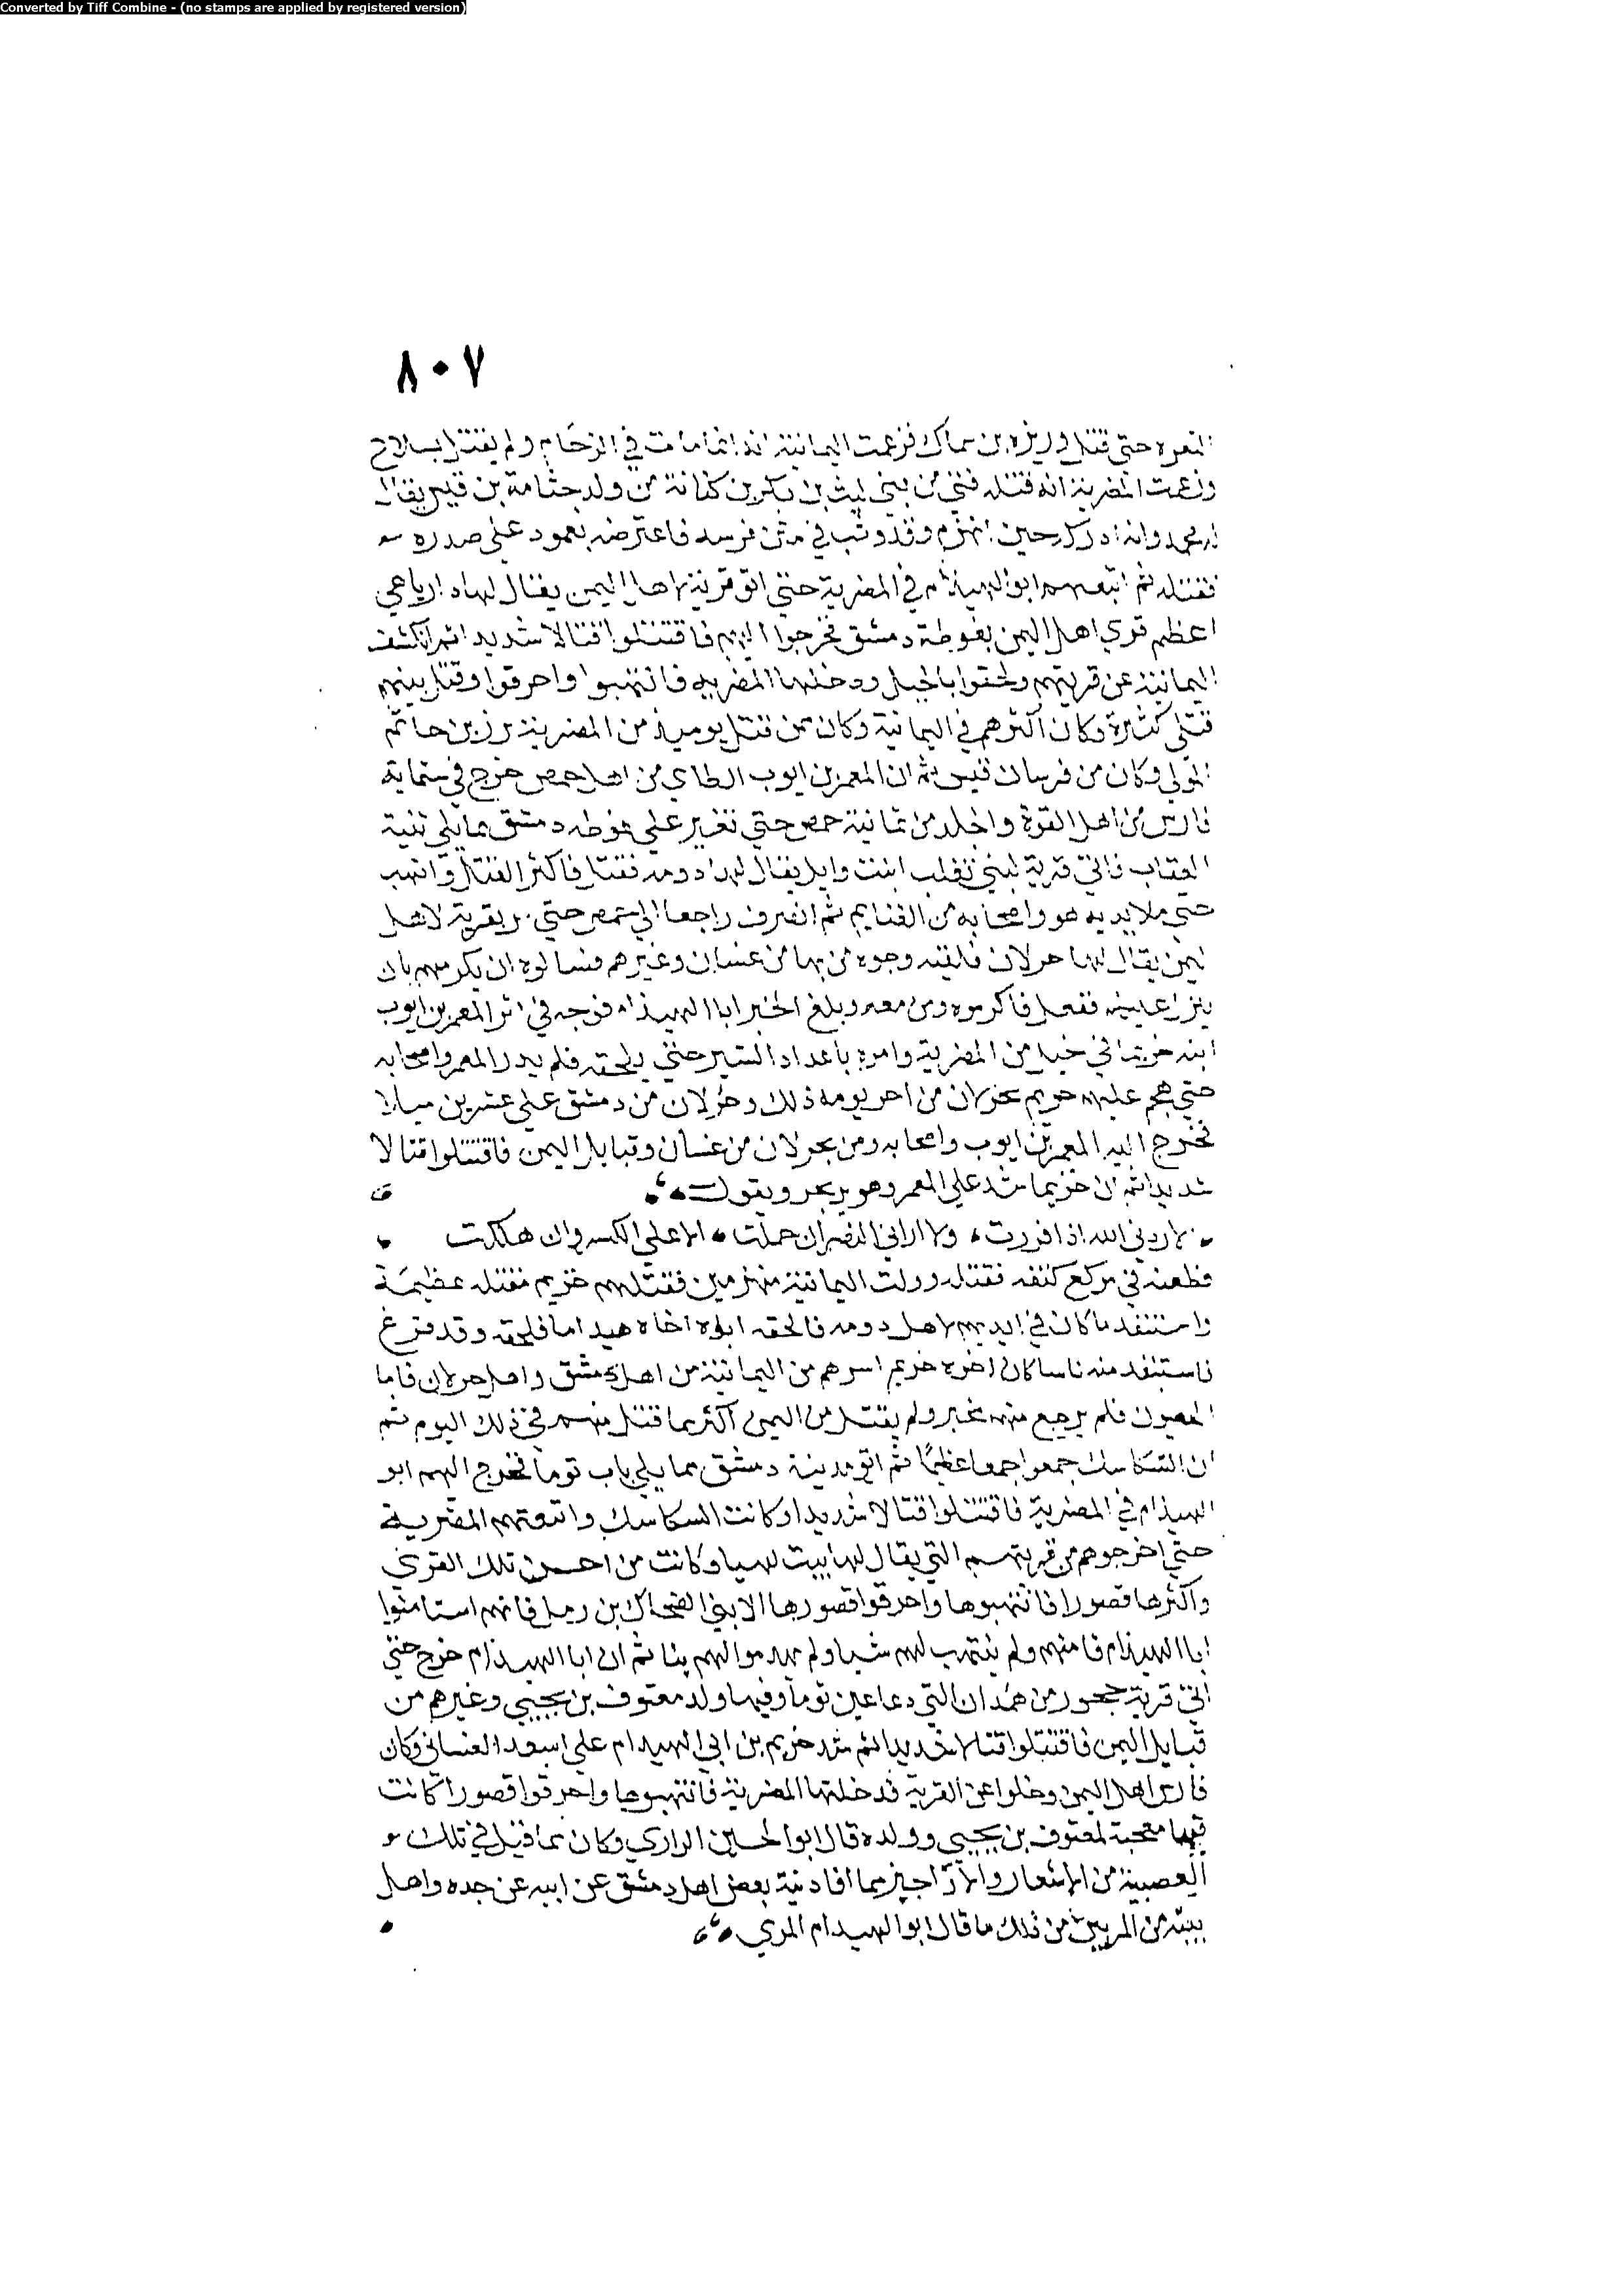 Converted by Tiff Combine - (no stamps are applied by registered version)
٨٠٧
حتى قتل وريزه بن سماك فزعمت اليمانية انه انما مات في الزحام ولم يقتل بسلاح
وزعمت المضرية انه قتله فتى من بني ليث بن بكر بن كنانة من ولد جثامة بن قيس يقال
وانه ادركه حين انهزم وقد وثب في متن فرسه فاعترضه بعمود على صدره
فقتله ثم اتبعهم ابو الهيذام في المضرية حتى اتو قرية لاهل اليمن يقال لها داريا هي
اعظم قري اهل اليمن بغوطة دمشق فخرجوا اليهم فاقتتلوا قتالا شديدا ثم انكشف
اليمانية عن قريتهم ولحقوا بالجبل ودخلها المضريه فانتهبوا واحرقوا وقتل بينهم
قتلى كثيرة وكان اكثرهم في اليمانية وكان ممن قتل يوميذ من المضرية برز بن حاتم
وكان من فرسان قيس ثم ان المعمر بن ايوب الطاي من اهل حمص خرج في ستماية
فارس من اهل القوة والجلد من يمانية حمص حتى تغير على غوطه دمشق مما يلي ثنية
العقاب فاتى قرية لبني تغلب ابنت وايل يقال لها دومه فقتل فاكثر القتل وانتهب
حتى ملا يديه هو واصحابه من الغنايم ثم انصرف راجعا الى حمص حتى مر بقرية لاهل
اليمن يقال لها حرلان فلقيه وجوه من بها من غسان وغيرهم فسالوه ان يكرمهم بان
ينزل عليهم ففعل فاكرموه ومن معه وبلغ الخبر ابا الهيذام فوجه في اثر المعمر بن ايوب
ابنه خريما في خيل من المضرية وامره باعداد السير حتى يلحقه فلم يدر المعمر واصحابه
حتى هجم عليهم خريم بحرلان من اخر يومه ذلك وحرلان من دمشق على عشرين ميلا
فخرج اليه المعمر بن ايوب واصحابه ومن بحرلان من غسان وقبايل اليمن فاقتتلوا قتالا
شديدا ثم ان خريما شد على المعمر وهو يرتجز ويقول
لا ردني الله اذا فررت ولا اراني النصر ان حملت الا على الكبش وان هلكت
فطعنه في مركع كتفه فقتله وولت اليمانية منهزمين فقتلهم خريم مقتله عظيمة
واستنقذ ما كان في ايديهم لاهل دومه فالحقه ابوه اخاه هيداما فلحقه وقد فرغ
فاستنقذ منه ناسا كان اخوه خريم اسرهم من اليمانية من اهل دمشق واهل حرلان فاما
الحمصيون فلم يرجع منهم مخبر ولم يقتل من اليمن اكثر مما قتل منهم في ذلك اليوم ثم
ان السكاسك جمعوا جمعا عظيما ثم اتو مدينة دمشق مما يلي باب توما فخرج اليهم ابو
الهيذام في المضرية فاقتتلوا قتالا شديدا وكانت السكاسك واتبعتهم المضرية
حتى اخرجوهم من قريتهم التي يقال لها بيت لهيا وكانت من احسن تلك القرى
واكثرها قصورا فانتهبوها واحرقوا قصورها الا بني الضحاك بن رمل فانهم استامنوا
ابا الهيذام فامنهم ولم ينتهب لهم شيا ولم يهدموا لهم بنا ثم ان ابا الهيذام خرج حتى
اتى قرية جحور من همدان التي دعا عين توما وفيها ولد معتوف بن يحيى وغيرهم من
قبايل اليمن فاقتتلوا قتالا شديدا ثم شد خريم بن ابي الهيدام على اسعد الغساني وكان
فارس اهل اليمن وخلوا عن القرية فدخلتها المضرية فانتهبوها واحرقوا قصورا كانت
فيها معجبة لمعتوف بن يحيى وولده قال ابو الحسين الرازي وكان مما قيل في تلك
العصبية من الاشعار والاراجيز مما افادنيه بعض اهل دمشق عن ابيه عن جده واهل
بيته من المريين من ذلك ما قال ابو الهيدام المري